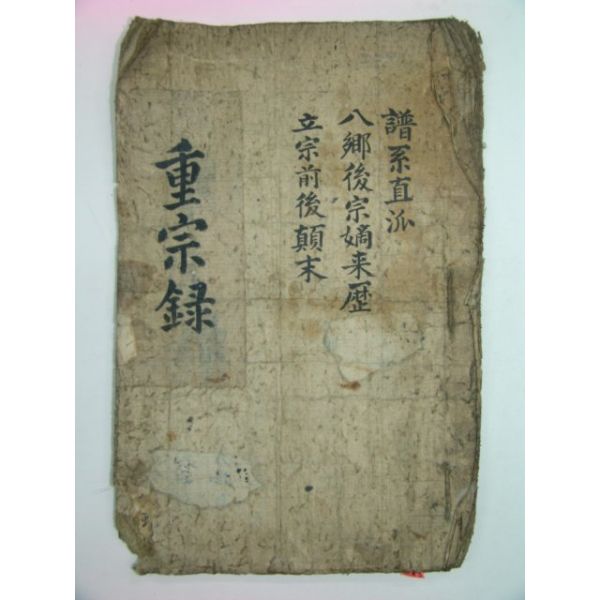 譜系直派
八鄕後宗嫡来歴
立宗前後顛末
重宗録